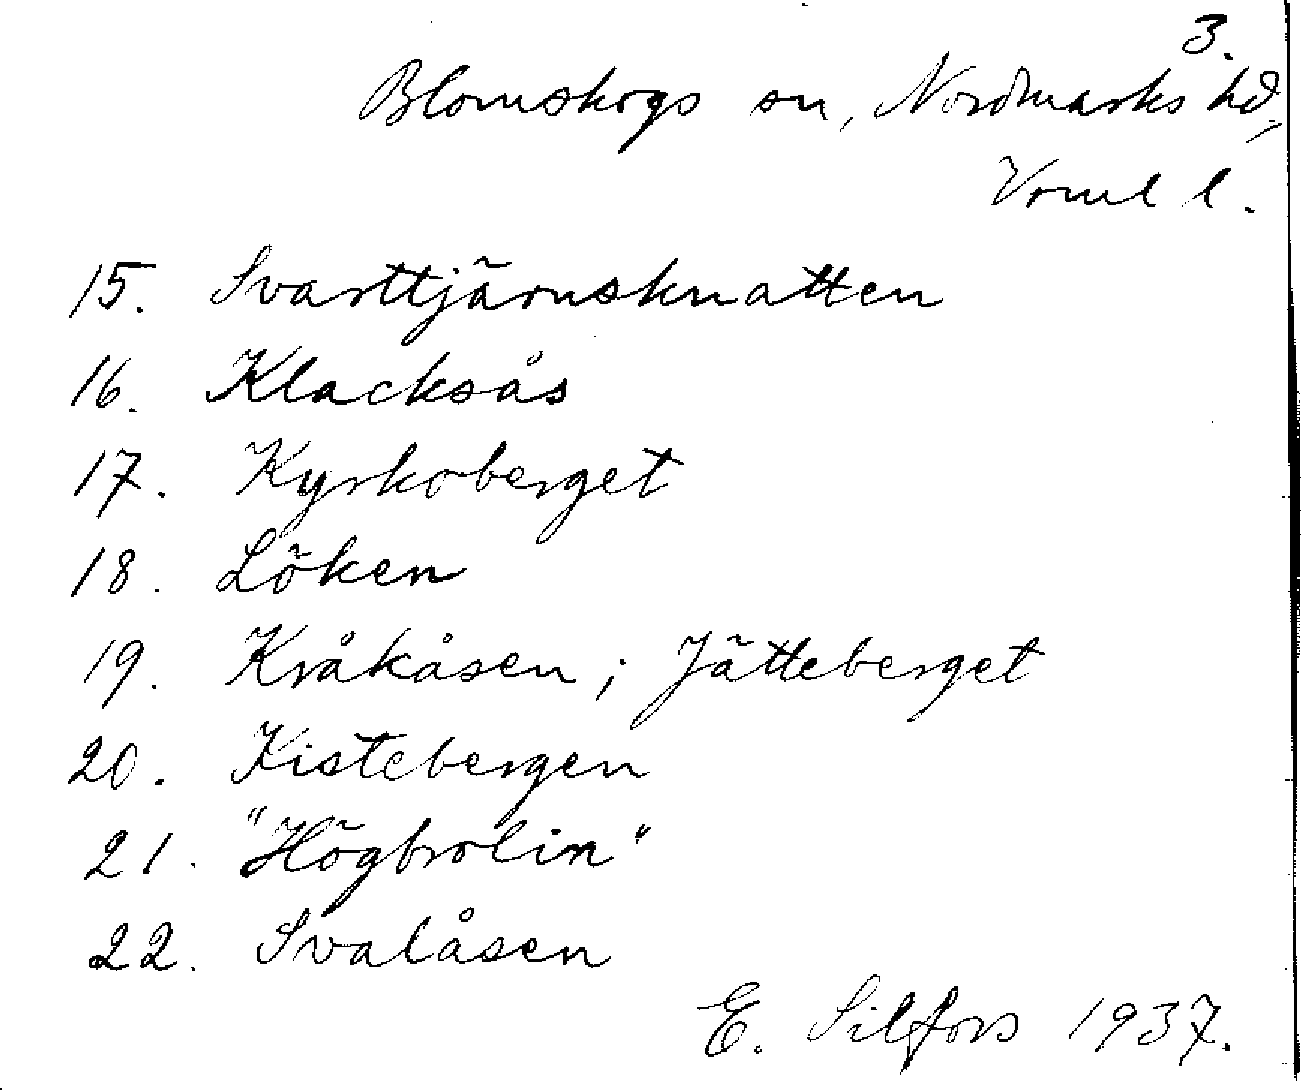 3.
Blomskogs sn, Nordmarks hd,
Vrml l.
15. Svarttjärnsknatten
16. Klacksås
17. Kyrkoberget
18. Löken
19. Kråkåsen; Jätteberget
20. Kistebergen
21. "Högbrolin"
22. Svalåsen
E. Silfors 1937.